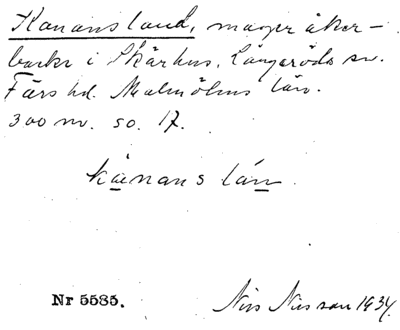 Kanans land, mager åker-
backe i Skärhus, Långaröds sn.
Färs hd. Malmöhus län.
300 m. so. 17.
kænans lán
Nr 5585.
Nils Nilsson 1934.